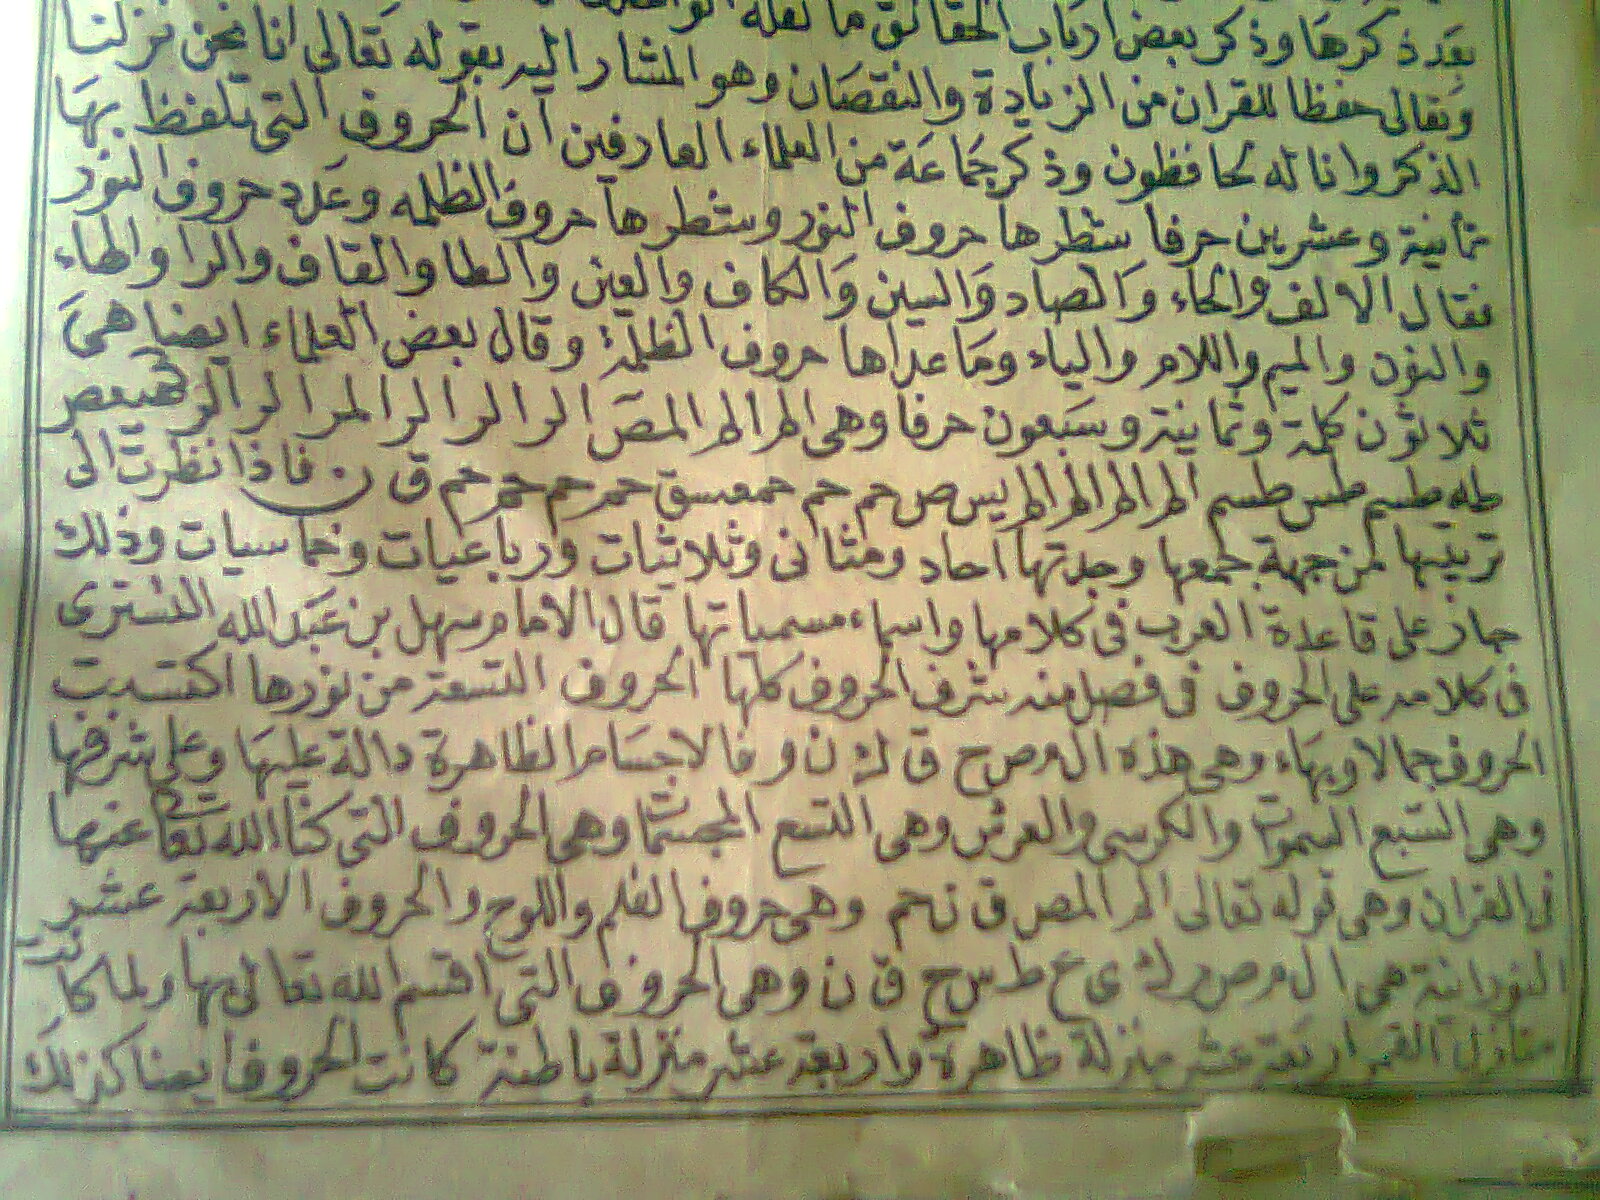 بعد ذكرها وذكر بعض ارباب الحقائق ما نقله
وتعالى حفظا للقران من الزيادة والنقصان وهو المشار اليه بقوله تعالى انا نحن نزلنا
الذكر وانا له لحافظون وذكر جماعة من العلماء العارفين ان الحروف التى يتلفظ بها
ثمانية وعشرين حرفا شطرها حروف النور وشطرها حروف الظلمه وعدد حروف النور
فقال الالف والحاء والصاد والسين والكاف والعين والطا والقاف والرا والهاء
والنون والميم واللام والياء وما عداها حروف الظلمة وقال بعض العلماء ايضا هى
ثلاثون كلمة وثمانية وسبعون حرفا وهى الم الم المص الر الر الر المر الر الر كهيعص
طه طسم طس طسم الم الم الم الم يس ص حم حم حمعسق حم حم حم حم ق ن فاذا نظرت الى
ترتيبها من جهة جمعها وجدتها احاد ومثانى وثلاثيات ورباعيات وخماسيات وذلك
جار على قاعدة العرب فى كلامها واسماء مسمياتها قال الامام سهل بن عبد الله التسترى
فى كلامه على الحروف فى فصل منه شرف الحروف كلها الحروف التسعة من نورها اكتسبت
الحروف جمالا وبهاء وهى هذه ال م ص ح ق ك ن و فالاجسام الظاهرة دالة عليها وعلى شرفها
وهى السبع السموات والكرسى والعرش وهى التسع المجسمات وهى الحروف التى كنا الله تعا عنها
فى القران وهى قوله تعالى الم المص ق ن حم وهى حروف القلم واللوح والحروف الاربعة عشر
النورانية هى ال م ص ر ك ى ع ط س ح ق ن وهى الحروف التى اقسم الله تعالى بها ولما كانت
منازل القمر اربعة عشر منزلة ظاهرة واربعة عشر منزلة باطنة كانت الحروف ايضا كذلك